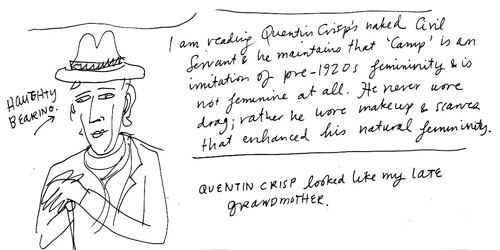 HAUGHTY
BEARING.
I am reading Quentin Crisp's naked Civil
Servant & he maintains that 'Camp' is an
imitation of pre-1920s femininity & is
not feminine at all. He never wore
drag; rather he wore makeup & scarves
that enhanced his natural femininity.
QUENTIN CRISP looked like my late
grandmother.